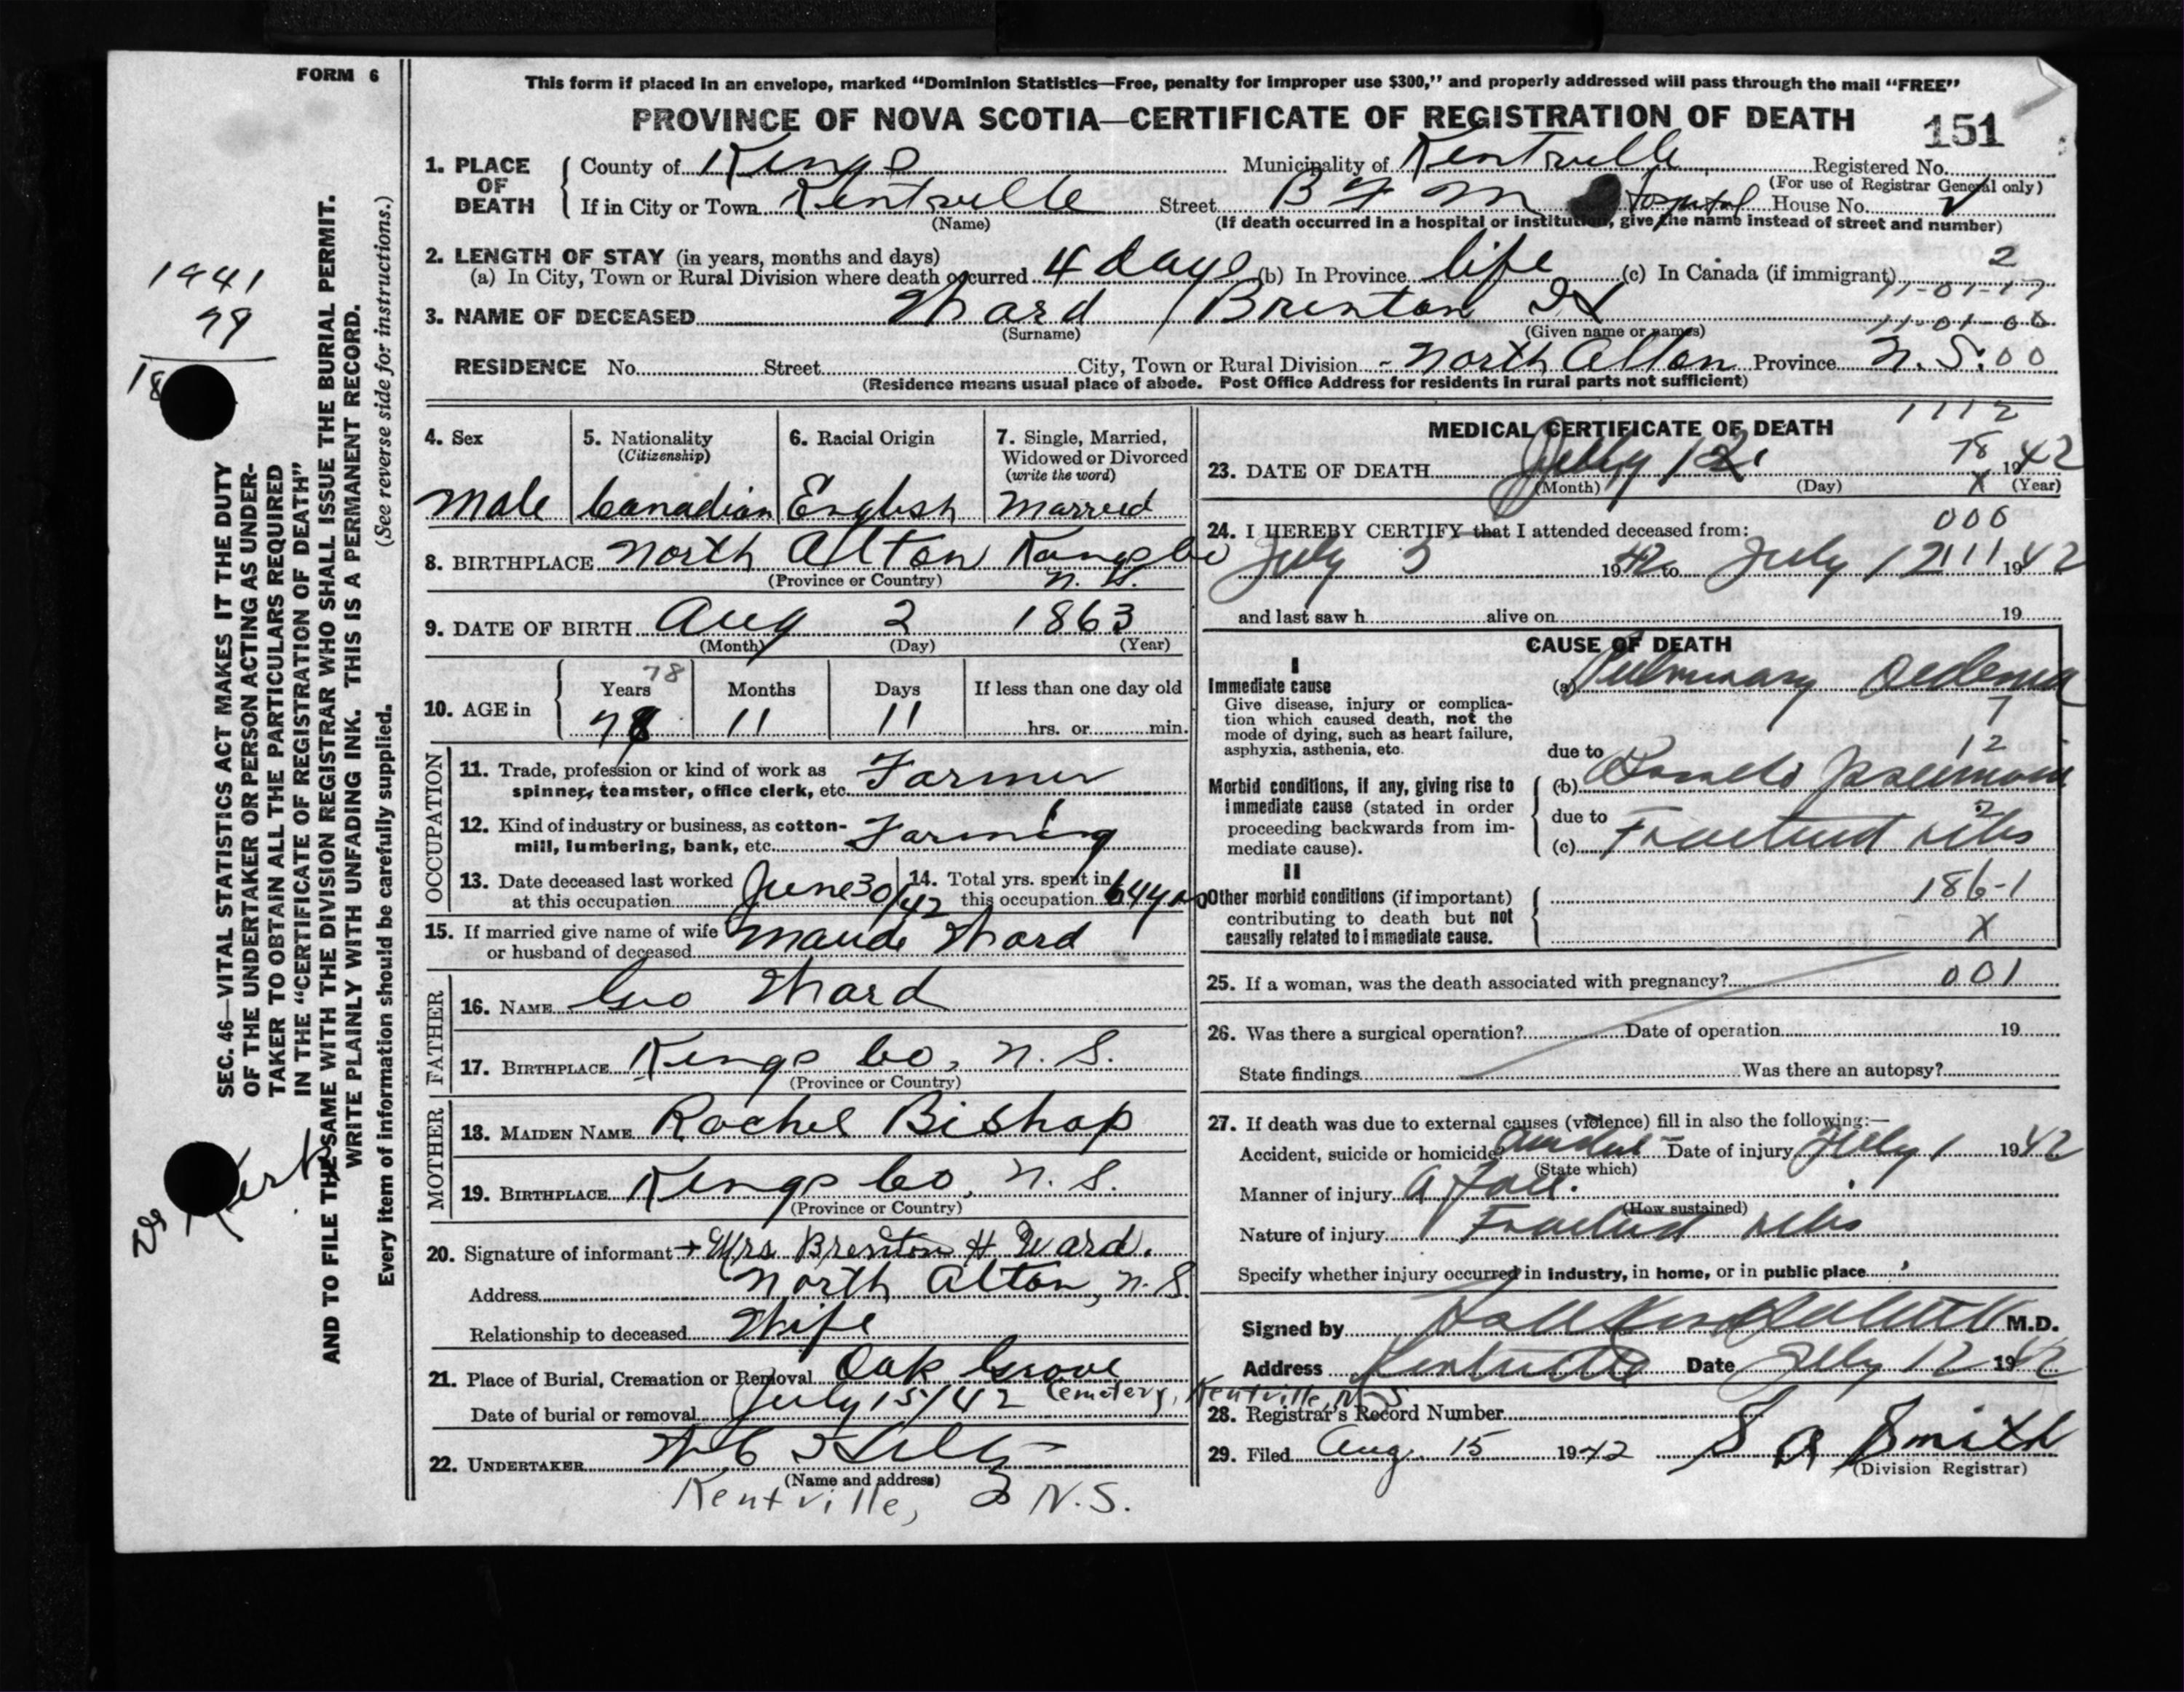 FORM 6
This form if placed in an envelope, marked “Dominion Statistics—Free, penalty for improper use $300,” and properly addressed will pass through the mail “FREE”
PROVINCE OF NOVA SCOTIA—CERTIFICATE OF REGISTRATION OF DEATH
151
1. PLACE OF DEATH County of Kings Municipality of Kentville Registered No.
(For use of Registrar General only)
If in City or Town Kentville Street B F M Hospital House No.
(Name) (If death occurred in a hospital or institution, give the name instead of street and number)
2. LENGTH OF STAY (in years, months and days) 2
(a) In City, Town or Rural Division where death occurred 4 days (b) In Province life (c) In Canada (if immigrant)
11-01-17
3. NAME OF DECEASED Ward / Brenton H
(Surname) (Given name or names) 11-01-00
RESIDENCE No. Street City, Town or Rural Division - North Alton Province N. S. 00
(Residence means usual place of abode. Post Office Address for residents in rural parts not sufficient)
4. Sex 5. Nationality (Citizenship) 6. Racial Origin 7. Single, Married, Widowed or Divorced (write the word)
Male Canadian English Married
8. BIRTHPLACE North Alton Kings Co
(Province or Country) N. S.
9. DATE OF BIRTH Aug 2 1863
(Month) (Day) (Year)
78
10. AGE in Years Months Days If less than one day old
78 11 11 hrs. or min.
OCCUPATION
11. Trade, profession or kind of work as
spinner, teamster, office clerk, etc. Farmer
12. Kind of industry or business, as cotton-
mill, lumbering, bank, etc. Farming
13. Date deceased last worked at this occupation June 30/42 14. Total yrs. spent in this occupation 64 yrs
15. If married give name of wife
or husband of deceased Maude Ward
FATHER
16. NAME Geo Ward
17. BIRTHPLACE Kings Co, N. S.
(Province or Country)
MOTHER
18. MAIDEN NAME Rachel Bishop
19. BIRTHPLACE Kings Co, N. S.
(Province or Country)
20. Signature of informant + Mrs Brenton H Ward.
Address North Alton, N. S.
Relationship to deceased Wife
21. Place of Burial, Cremation or Removal Oak Grove
Cemetery, Kentville, N S
Date of burial or removal July 15/42
22. UNDERTAKER W C
(Name and address)
Kentville, N.S.
1112
MEDICAL CERTIFICATE OF DEATH
78
23. DATE OF DEATH July 12 1942
(Month) (Day) X (Year)
006
24. I HEREBY CERTIFY that I attended deceased from:
July 3 1942 to July 12 111 1942
and last saw h alive on 19
CAUSE OF DEATH
I
Immediate cause (a) Pulmonary Oedema
Give disease, injury or complica-
tion which caused death, not the
mode of dying, such as heart failure,
asphyxia, asthenia, etc.
7
due to 12
Morbid conditions, if any, giving rise to (b) Pneumonia
immediate cause (stated in order
proceeding backwards from im-
mediate cause).
due to 2
(c) Fractured ribs
II
Other morbid conditions (if important) 186-1
contributing to death but not
causally related to immediate cause. X
25. If a woman, was the death associated with pregnancy? 001
26. Was there a surgical operation? Date of operation 19
State findings Was there an autopsy?
27. If death was due to external causes (violence) fill in also the following:—
Accident, suicide or homicide? Accident Date of injury July 1 1942
(State which)
Manner of injury A fall.
(How sustained)
Nature of injury Fractured ribs
Specify whether injury occurred in industry, in home, or in public place
Signed by M.D.
Address Kentville Date July 12 1942
28. Registrar's Record Number
29. Filed Aug. 15 1942 S A Smith
(Division Registrar)
SEC. 46—VITAL STATISTICS ACT MAKES IT THE DUTY
OF THE UNDERTAKER OR PERSON ACTING AS UNDER-
TAKER TO OBTAIN ALL THE PARTICULARS REQUIRED
IN THE “CERTIFICATE OF REGISTRATION OF DEATH”
AND TO FILE THE SAME WITH THE DIVISION REGISTRAR WHO SHALL ISSUE THE BURIAL PERMIT.
WRITE PLAINLY WITH UNFADING INK. THIS IS A PERMANENT RECORD.
Every item of information should be carefully supplied. (See reverse side for instructions.)
1941
79
18